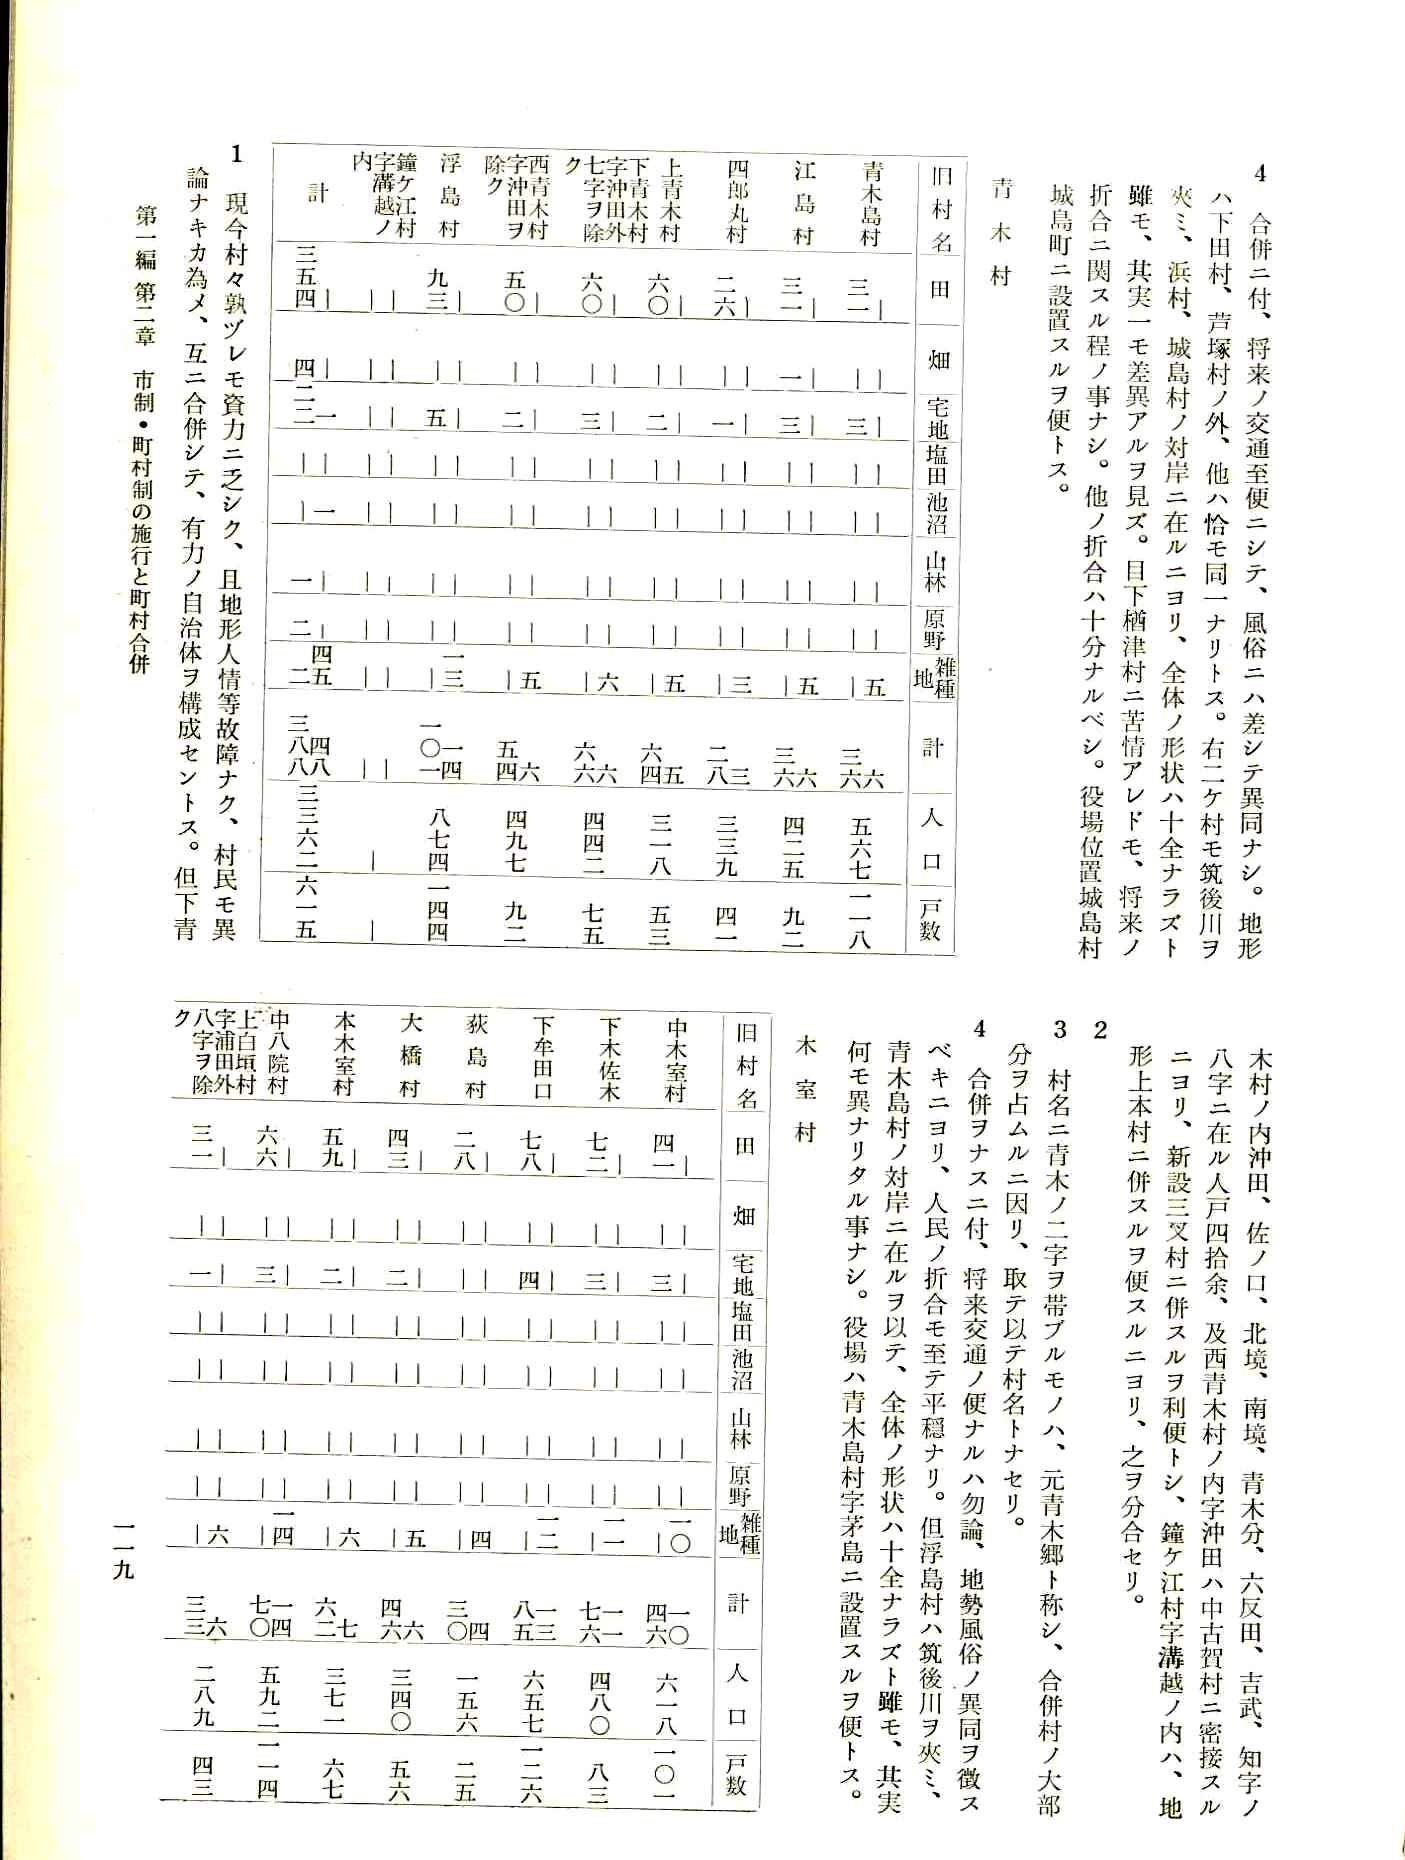 4　合併ニ付、将来ノ交通至便ニシテ、風俗ニハ差シテ異同ナシ。地形
ハ下田村、芦塚村ノ外、他ハ恰モ同一ナリトス。右二ケ村モ筑後川ヲ
夾ミ、浜村、城島村ノ対岸ニ在ルニヨリ、全体ノ形状ハ十全ナラズト
雖モ、其実一モ差異アルヲ見ズ。目下楢津村ニ苦情アレドモ、将来ノ
折合ニ関スル程ノ事ナシ。他ノ折合ハ十分ナルベシ。役場位置城島村
城島町ニ設置スルヲ便トス。
青木村
旧村名　田　畑　宅地　塩田　池沼　山林　原野　雑種地　計　人口　戸数
青木島村　三一｜　｜｜　三｜　｜｜　｜｜　｜｜　｜｜　五｜　三六六　五六七　一一八
江島村　三一｜　一｜　三｜　｜｜　｜｜　｜｜　｜｜　五｜　三六六　四二五　九二
四郎丸村　二六｜　｜｜　一｜　｜｜　｜｜　｜｜　｜｜　三｜　二八三　三三九　四一
上青木村　六〇｜　｜｜　二｜　｜｜　｜｜　｜｜　｜｜　五｜　六四五　三一八　五三
下青木村字沖田外七字ヲ除ク　六〇｜　｜｜　三｜　｜｜　｜｜　｜｜　｜｜　六｜　六六六　四四二　七五
西青木村字沖田ヲ除ク　五〇｜　｜｜　二｜　｜｜　｜｜　｜｜　｜｜　五｜　五四六　四九七　九二
浮島村　九三｜　｜｜　五｜　｜｜　｜｜　｜｜　｜｜　一三｜　一〇一一四　八七四　一四四
鐘ケ江村字溝越ノ内　｜｜　｜｜　｜｜　｜｜　｜｜　｜｜　｜｜　｜｜　｜｜　｜　｜
計　三五四｜　四｜　二二一　｜｜　一｜　一｜　二｜　四五二　三八八四八　三三六二　六一五
1　現今村々孰ヅレモ資力ニ乏シク、且地形人情等故障ナク、村民モ異
論ナキカ為メ、互ニ合併シテ、有力ノ自治体ヲ構成セントス。但下青
木村ノ内沖田、佐ノ口、北境、南境、青木分、六反田、吉武、知字ノ
八字ニ在ル人戸四拾余、及西青木村ノ内字沖田ハ中古賀村ニ密接スル
ニヨリ、新設三又村ニ併スルヲ利便トシ、鐘ケ江村字溝越ノ内ハ、地
形上本村ニ併スルヲ便スルニヨリ、之ヲ分合セリ。
2
3　村名ニ青木ノ二字ヲ帯ブルモノハ、元青木郷ト称シ、合併村ノ大部
分ヲ占ムルニ因リ、取テ以テ村名トナセリ。
4　合併ヲナスニ付、将来交通ノ便ナルハ勿論、地勢風俗ノ異同ヲ徴ス
ベキニヨリ、人民ノ折合モ至テ平穏ナリ。但浮島村ハ筑後川ヲ夾ミ、
青木島村ノ対岸ニ在ルヲ以テ、全体ノ形状ハ十全ナラズト雖モ、其実
何モ異ナリタル事ナシ。役場ハ青木島村字茅島ニ設置スルヲ便トス。
木室村
旧村名　田　畑　宅地　塩田　池沼　山林　原野　雑種地　計　人口　戸数
中木室村　四一｜　｜｜　三｜　｜｜　｜｜　｜｜　｜｜　一〇｜　四六一〇　六一八　一〇一
下木佐木　七二｜　｜｜　三｜　｜｜　｜｜　｜｜　｜｜　一一｜　七六一一　四八〇　八三
下牟田口　七八｜　｜｜　四｜　｜｜　｜｜　｜｜　｜｜　一二｜　八五一三　六五七　一二六
荻島村　二八｜　｜｜　｜｜　｜｜　｜｜　｜｜　｜｜　四｜　三〇四　一五六　二五
大橋村　四三｜　｜｜　二｜　｜｜　｜｜　｜｜　｜｜　五｜　四六六　三四〇　五六
本木室村　五九｜　｜｜　二｜　｜｜　｜｜　｜｜　｜｜　六｜　六二七　三七一　六七
中八院村　六六｜　｜｜　三｜　｜｜　｜｜　｜｜　｜｜　一四｜　七〇一四　五九二　一一四
上白垣村字浦田外八字ヲ除ク　三一｜　｜｜　一｜　｜｜　｜｜　｜｜　｜｜　六｜　三三六　二八九　四三
第一編 第二章　市制・町村制の施行と町村合併
一一九